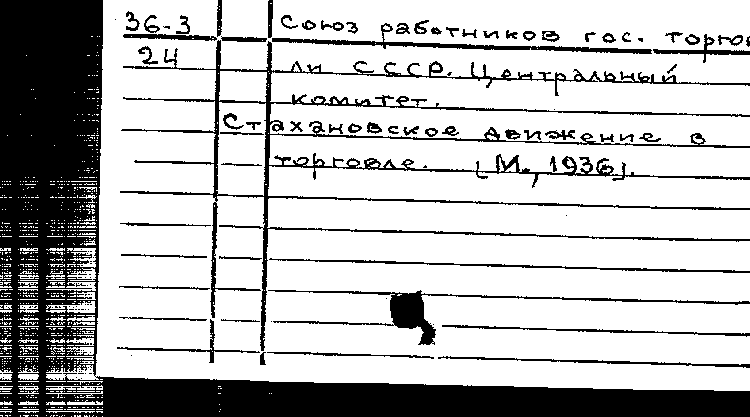 36-3 Союз работников гос. торгов
24 ли СССР. Центральный
комитет.
Стахановское движение в
торговле. [М., 1936].